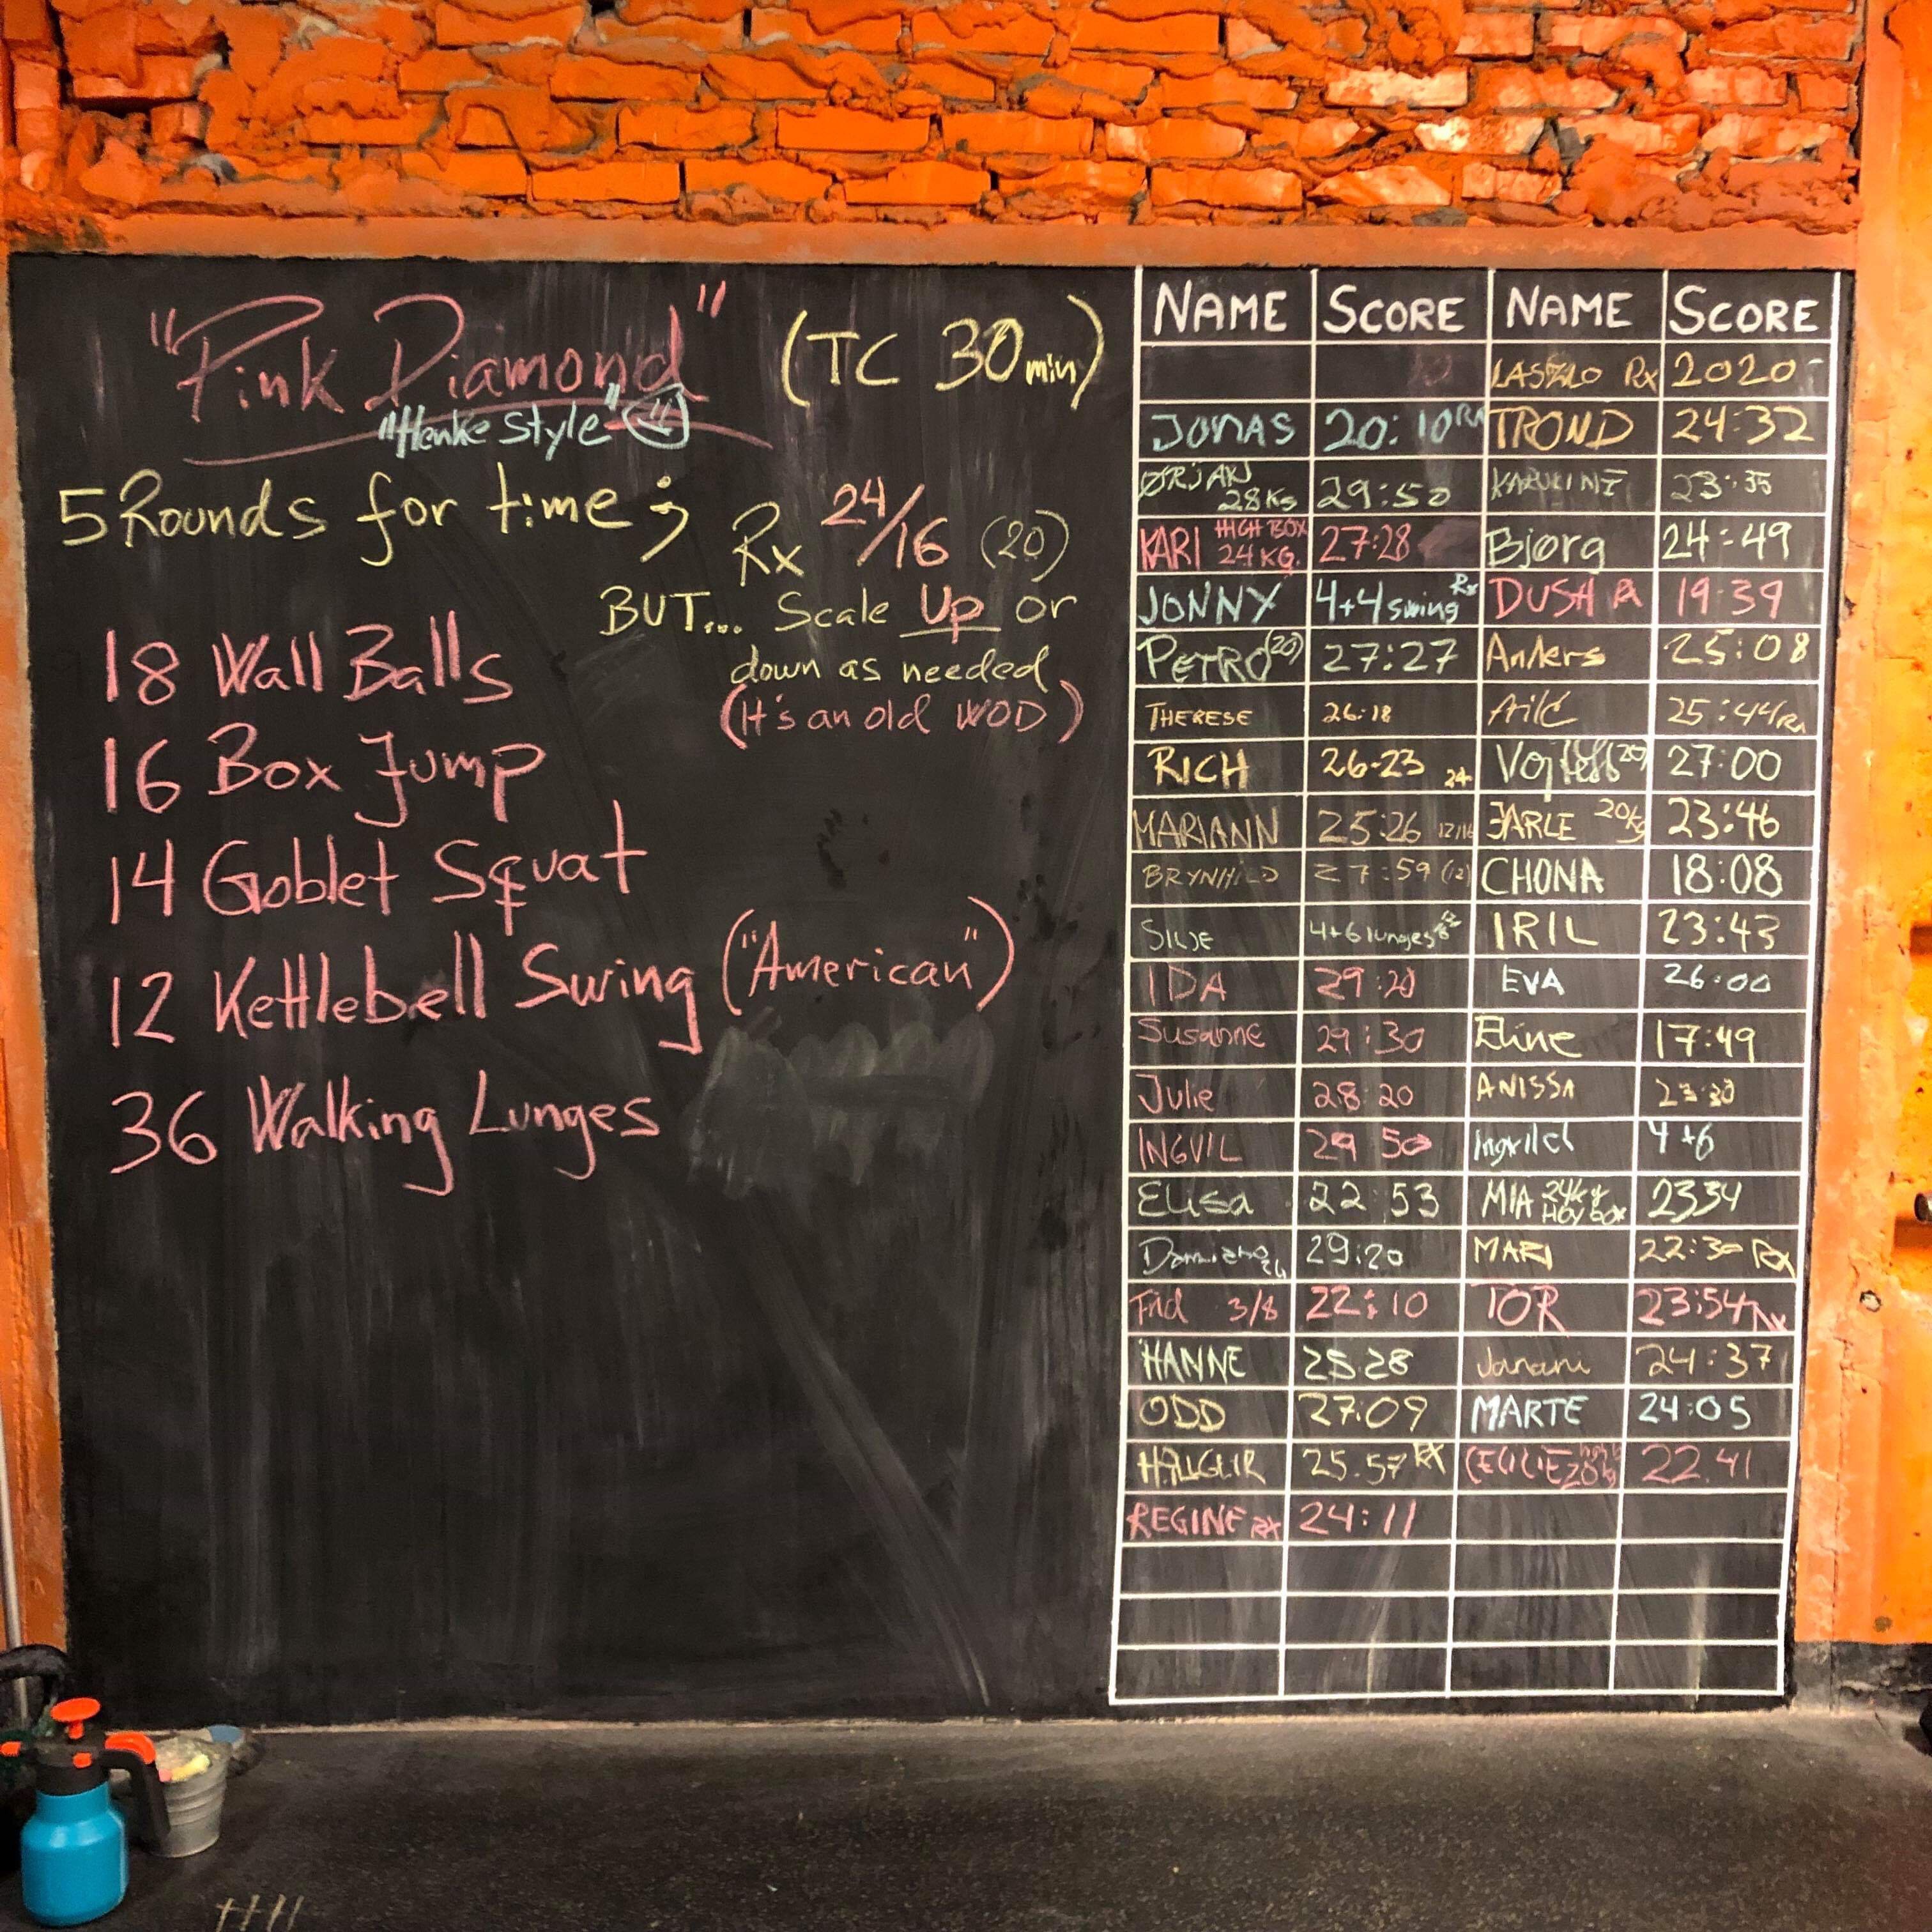 "Pink Diamond" (TC 30 min)
"Henke Style"
5 Rounds for time;
Rx 24/16 (20)
BUT... Scale Up or
down as needed
(It's an old WOD)
18 Wall Balls
16 Box Jump
14 Goblet Squat
12 Kettlebell Swing ("American")
36 Walking Lunges
NAME SCORE NAME SCORE
LASZLO Rx 2020
JONAS 20:10 RX TROND 24:32
ØRJAN 28KG 29:50 23:35
KARI HIGH BOX 24 KG. 27:28 Bjørg 24:49
JONNY 4+4 swing Rx DUSH 19:39
PETRO (20) 27:27 Anders 25:08
THERESE 26:18 Arild 25:44 Rx
RICH 26-23 24 (20) 27:00
MARIANN 25:26 12/16 JARLE 20kg 23:46
BRYNHILD 27:59 (12) CHONA 18:08
SILJE 4+6 lunges IRIL 23:43
IDA 29:20 EVA 26:00
Susanne 29:30 Eline 17:49
Julie 28:20 ANISSA 23:30
INGVIL 29 50 Ingrild 4+6
ELISA 22:53 MIA 24kg HØY BOX 2334
29:20 MARI 22:30 RX
3/8 22:10 TOR 23:54 Rx
HANNE 25.28 Janani 24:37
ODD 27:09 MARTE 24:05
25.57 RX CECILIE 22.41
REGINE RX 24:11